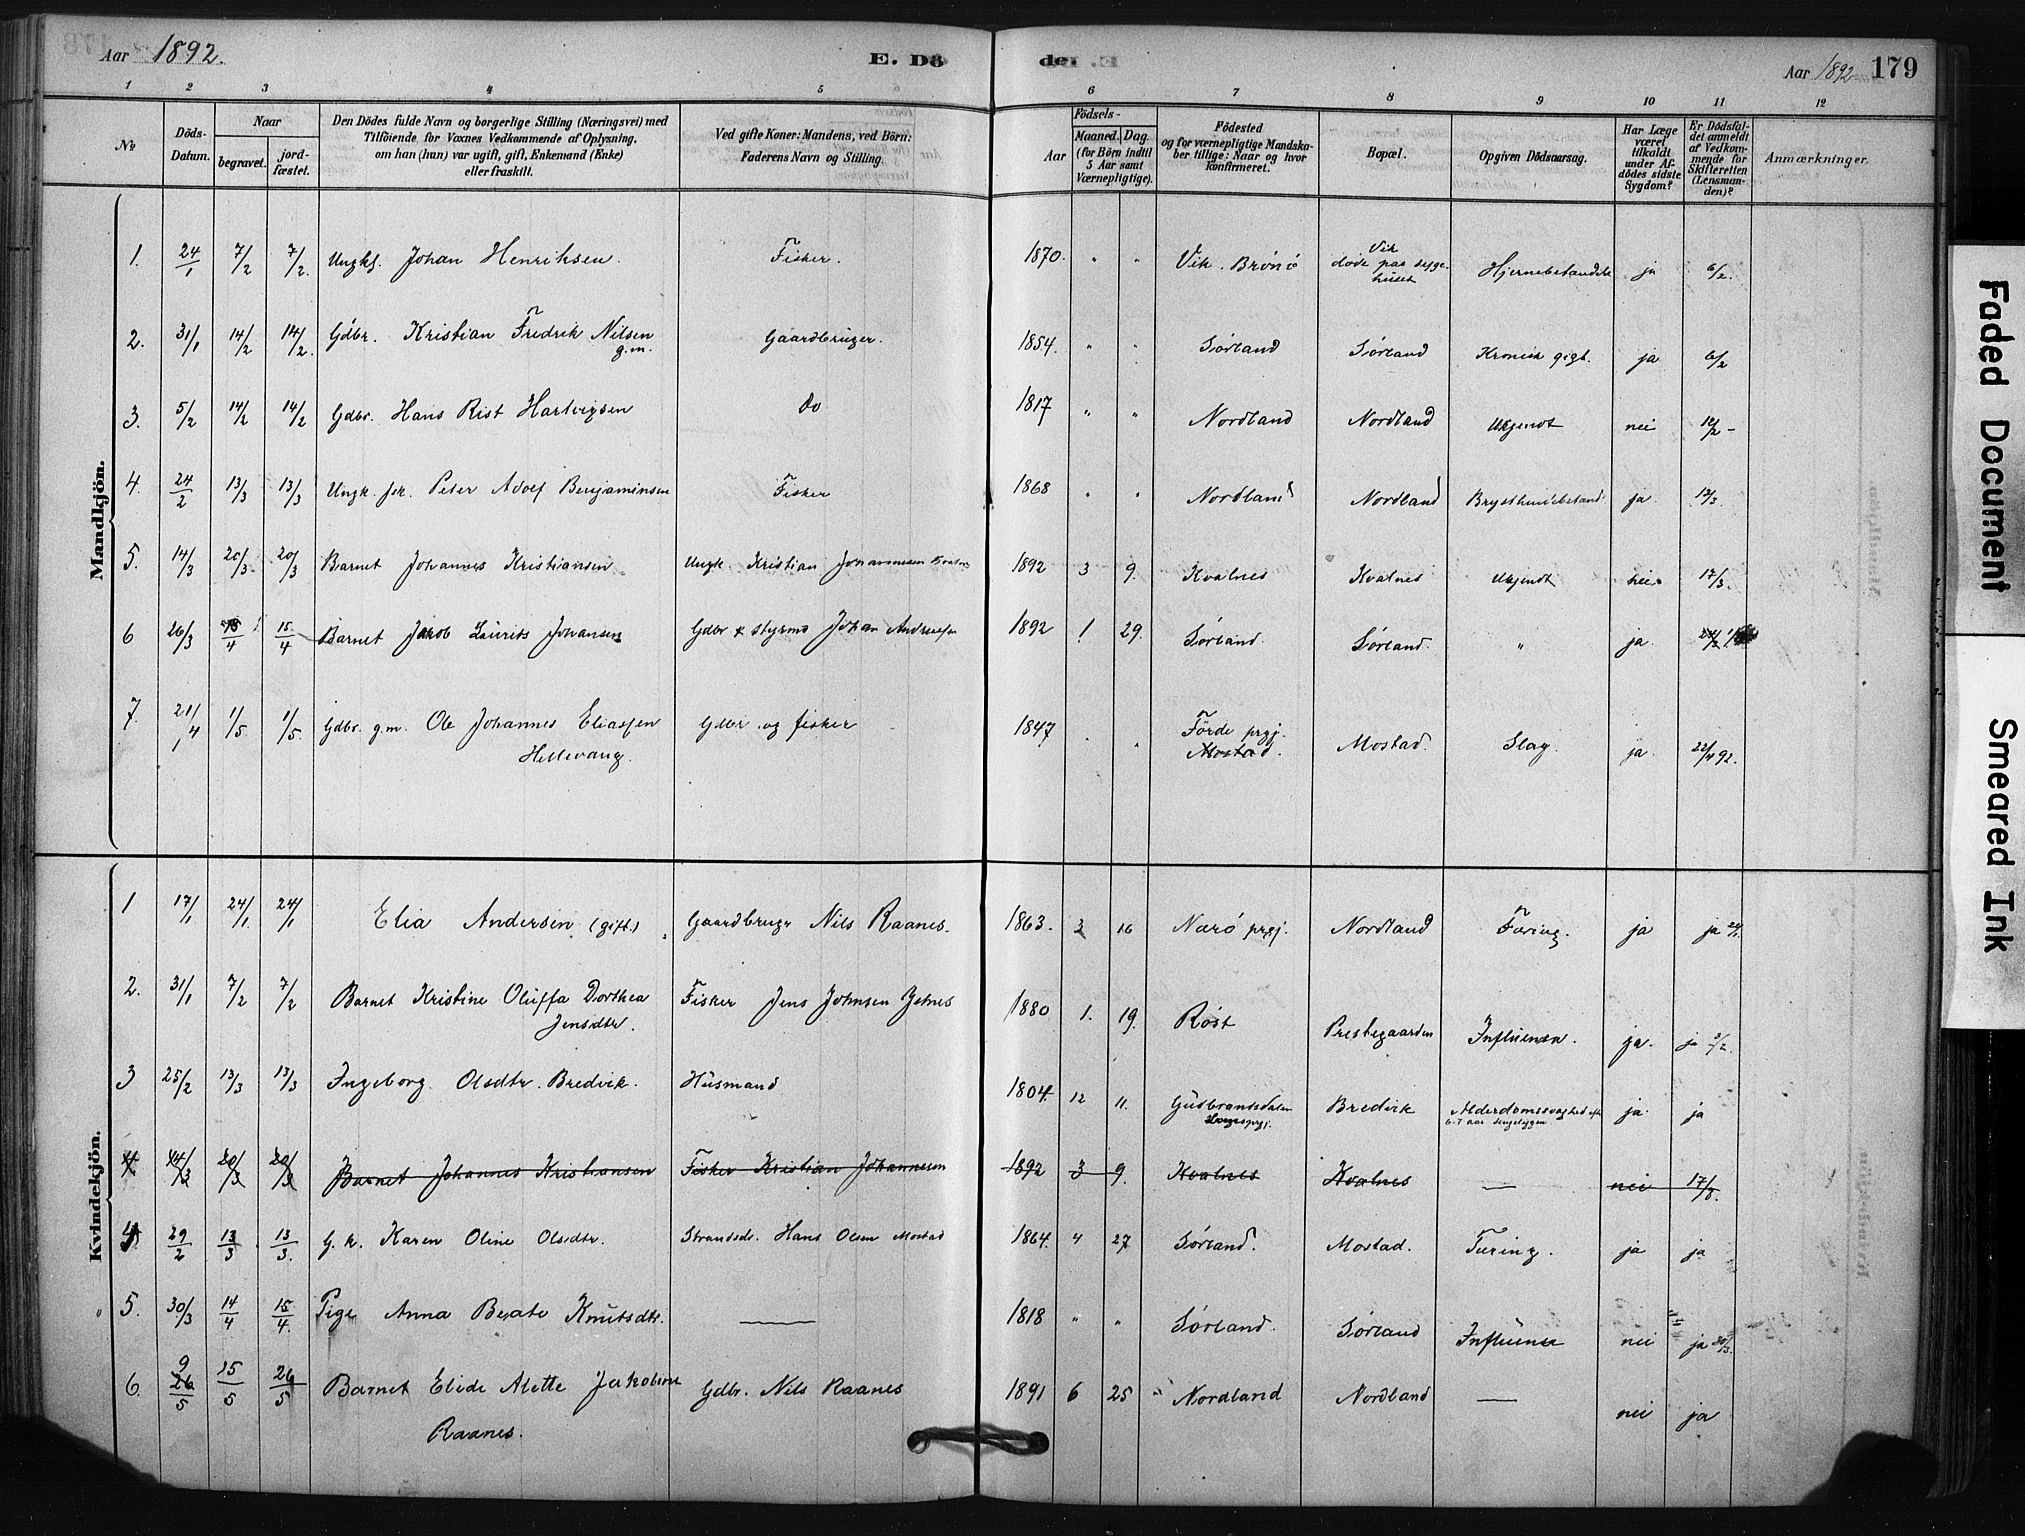 Aar 1892.
E. Dö
de
Aar 1892
179
1 2 3 4 5 6 7 8 9 10 11 12
No
Döds-Datum.
Naar
begravet.
jord-fæstet.
Den Dödes fulde Navn og borgerlige Stilling (Næringsvei) med
Tilföiende for Voxnes Vedkommende af Oplysning,
om han (hun) var ugift, gift, Enkemand (Enke)
eller fraskilt.
Ved gifte Koner: Mandens, ved Börn:
Faderens Navn og Stilling.
Födsels-
Aar
Maaned. Dag.
(for Börn indtil
5 Aar samt
Værnepligtige).
Födested
og for værnepligtige Mandska-
ber tillige: Naar og hvor
konfirmeret.
Bopæl.
Opgiven Dödsaarsag.
Har Læge
været
tilkaldt
under Af-
dödes sidste
Sygdom?
Er Dödsfal-
det anmeldt
af Vedkom-
mende for
Skifteretten
(Lensman-
den)?
Anmærkninger.
Mandkjön.
1. 24/1 7/2 7/2. Ungkf. Johan Henriksen. Fisker. 1870. " " Vik. Brönö Vik döde paa syge-huset ja 6/2.
2. 31/1 14/2 14/2. Gdbr. Kristian Fredrik Nilsen g.m. Gaardbruger. 1854. " " Sörland Sörland Kronisk gigt. ja 6/2
3. 5/2 14/2 14/2 Gdbr. Hans Rist Hartvigsen Do 1817 " " Nordland Nordland Ukjendt nei 12/2 -
4. 24/2 13/3 13/3 Ungk. Peter Adolf Benjaminsen Fisker 1868 " " Nordland Nordland ja 13/3.
5. 14/3 20/3 20/3 Barnet Johannes Kristiansen Ungk. Kristian Johannesen 1892 3 9. Kvalnes Kvalnes Ukjendt nei 17/3.
6 26/3 15/4 15/4 Barnet Jacob Laurits Johansen Gdbr & styrmd Johan Andreasen 1892 1 29. Sörland. Sörland. " ja.
7. 21/4 1/5 1/5. Gdbr. g.m. Ole Johannes Eliassen Hellevang. Gdbr. og fisker 1847 " " Förde prgj. Mostad. Mostad. Slag. ja. 22/4 92.
Kvindekjön.
1 17/1 24/1. 24/1 Elia Andersen (gift.) Gaardbrugr Nils Raanes. 1863. 3 16 Nærö prgj. Nordland Tæring. ja ja 24/1.
2. 31/1 7/2 7/2 Barnet Kristine Oluffa Dorthea Jensdtr. Fisker Jens Johnsen 1880 1. 19. Röst Prestegaarden Influensa. ja. ja 7/2.
3 25/2 13/3 13/3 Ingeborg Olsdtr. Bredvik. Husmand 1804. 12 11. Gudbrandsdalen Bredvik Alderdomssvaghed efter 6-7 aar sengeliggen ja ja
4 14/3 20/3 20/3 Barnet Johannes Kristiansen Fisker Kristian Johannesen 1892 3 9. Kvalnes Kvalnes — nei 17/3.
4. 29/2 13/3 13/3. G. k. Karen Oline Olsdtr. Strandsdr. Hans Olsen Mostad 1864. 4 27 Sörland. Mostad. Tæring. ja ja
5. 30/3 14/4 15/4. Pige Anna Berate Knutsdtr. — 1818 " " Sörland. Sörland Influensa nei ja 30/3.
6. 9 26/5 15/5 26/5 Barnet Elide Alette Jakobine Raanes. Gdbr. Nils Raanes 1891 6 25 Nordland Nordland — nei ja
Faded Document
Smeared Ink